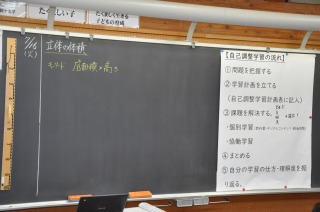 たくましい子
子どもの育成
7/16
(火)
立体の体積
底面積×高さ
【自己調整学習の流れ】
①問題を把握する
②学習計画を立てる
(自己調整学習計画表に記入)
③課題を解決する
・個別学習
・協働学習
④まとめる
⑤自分の学習の仕方・理解度を振
り返る。